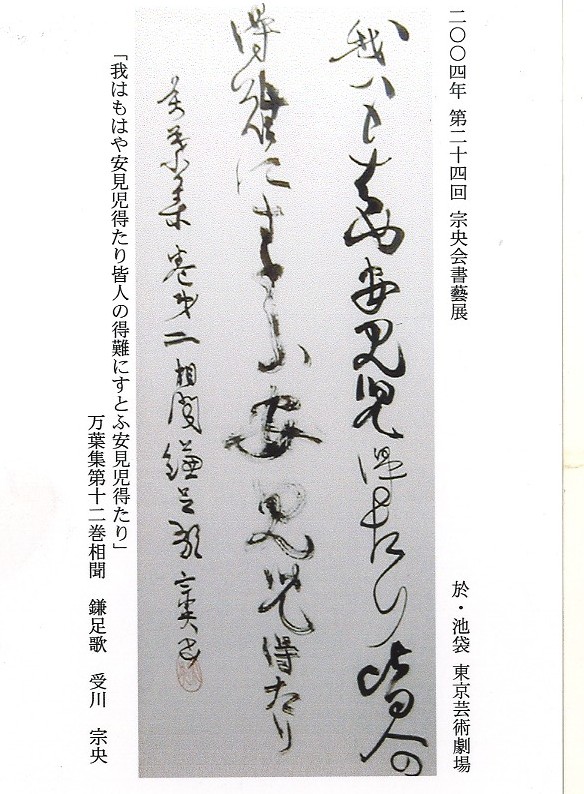 二〇〇四年 第二十四回 宗央会書藝展
於・池袋 東京芸術劇場
我ハもはや安見児得たり皆人の
得難にすとふ安見児得たり
万葉集 巻第二 相聞 鎌足歌
「我はもはや安見児得たり皆人の得難にすとふ安見児得たり」
万葉集第十二巻相聞 鎌足歌 受川 宗央